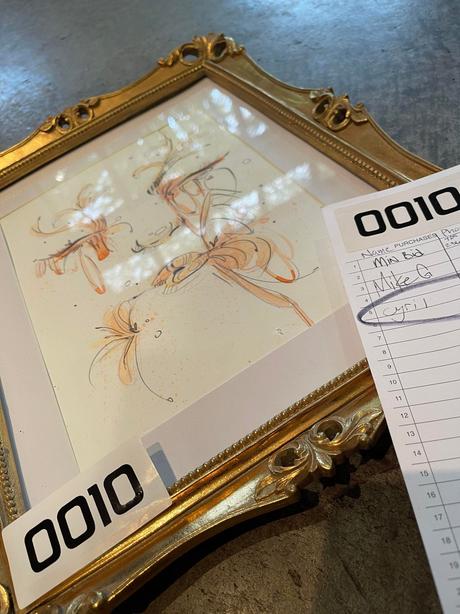 0010
Name PURCHASER
1 Min Bid
2 Mike G
3 cyril
7
8
9
10
11
12
13
14
15
16
17
18
19
0010